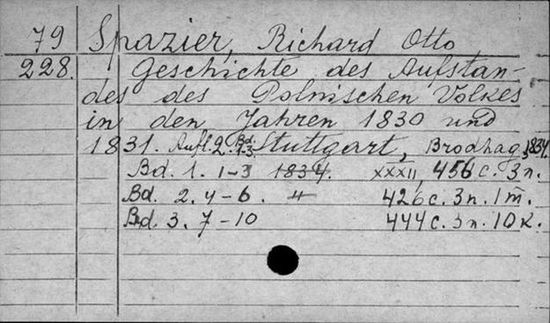 79 Spazier, Richard Otto
228. Geschichte des Aufstan-
des des Polnischen Volkes
in den Jahren 1830 und
1831. Aufl. 2. Bd. 1-3. Stuttgart, Brodhag, 1834.
Bd. 1. 1-3 1834. XXXII, 456 c. 3 n.
Bd. 2. 4-6. " 426 c. 3 n. 1 m.
Bd. 3. 7-10 444 c. 3 n. 10 k.